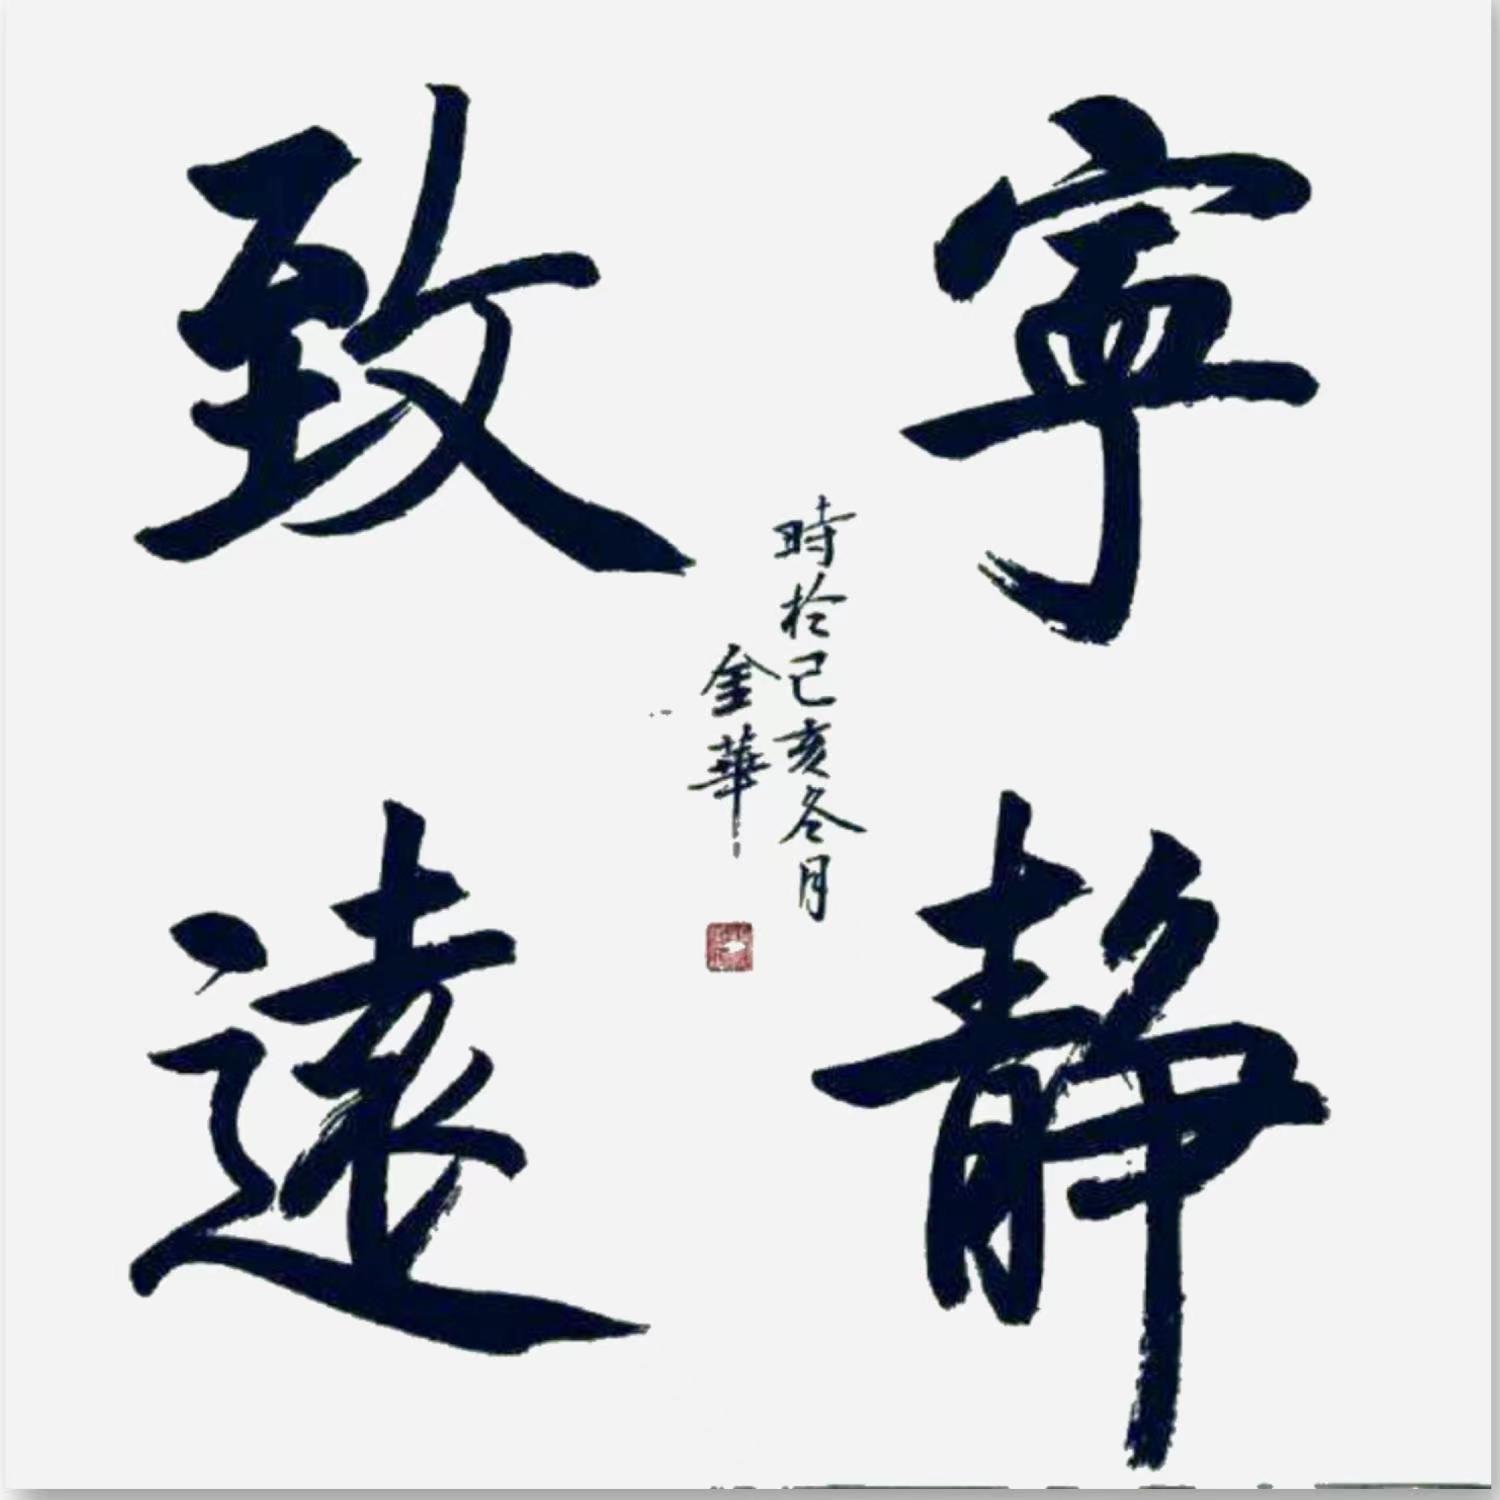 寧靜
致遠
時於己亥冬月
金華